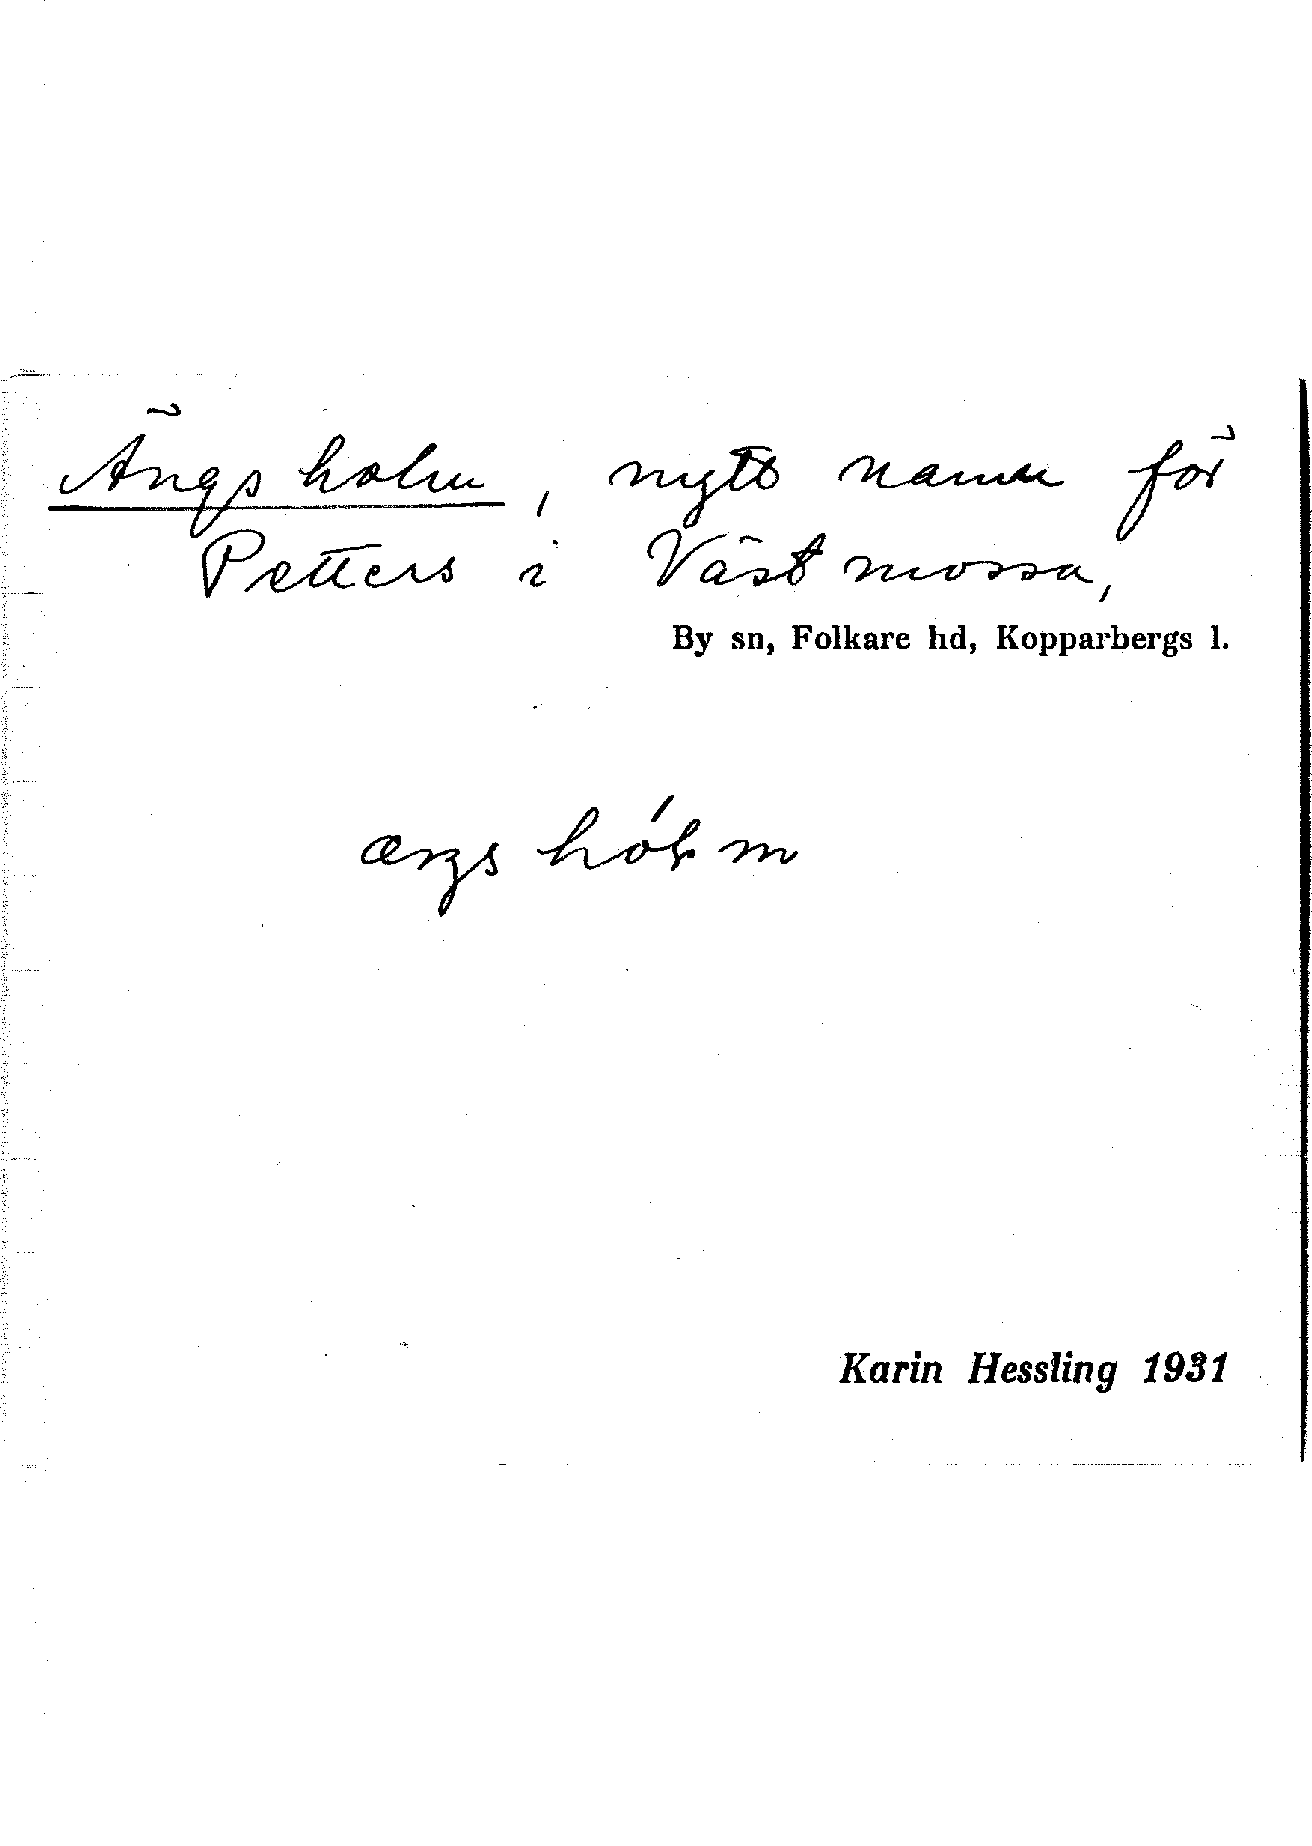 Ängsholm, nytt namn för
Petters i Västmossa,
By sn, Folkare hd, Kopparbergs l.
Karin Hessling 1931